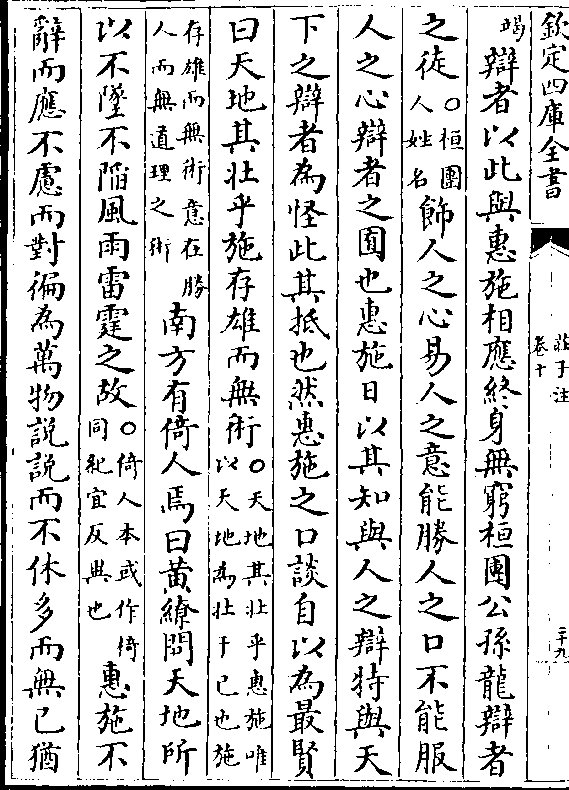 欽定四庫全書
莊子注
卷十
二十九
竭
辯者以此與惠施相應終身無窮桓團公孫龍辯者
之徒
○桓團
人姓名
飾人之心易人之意能勝人之口不能服
人之心辯者之囿也惠施日以其知與人之辯特與天
下之辯者為怪此其抵也然惠施之口談自以為最賢
曰天地其壯乎施存雄而無術
○天地其壯乎惠施唯
以天地為壯于已也施
存雄而無術意在勝
人而無道理之術
南方有倚人焉曰黃繚問天地所
以不墜不陷風雨雷霆之故
○倚人本或作倚
同紀宜反異也
惠施不
辭而應不慮而對徧為萬物說說而不休多而無已猶